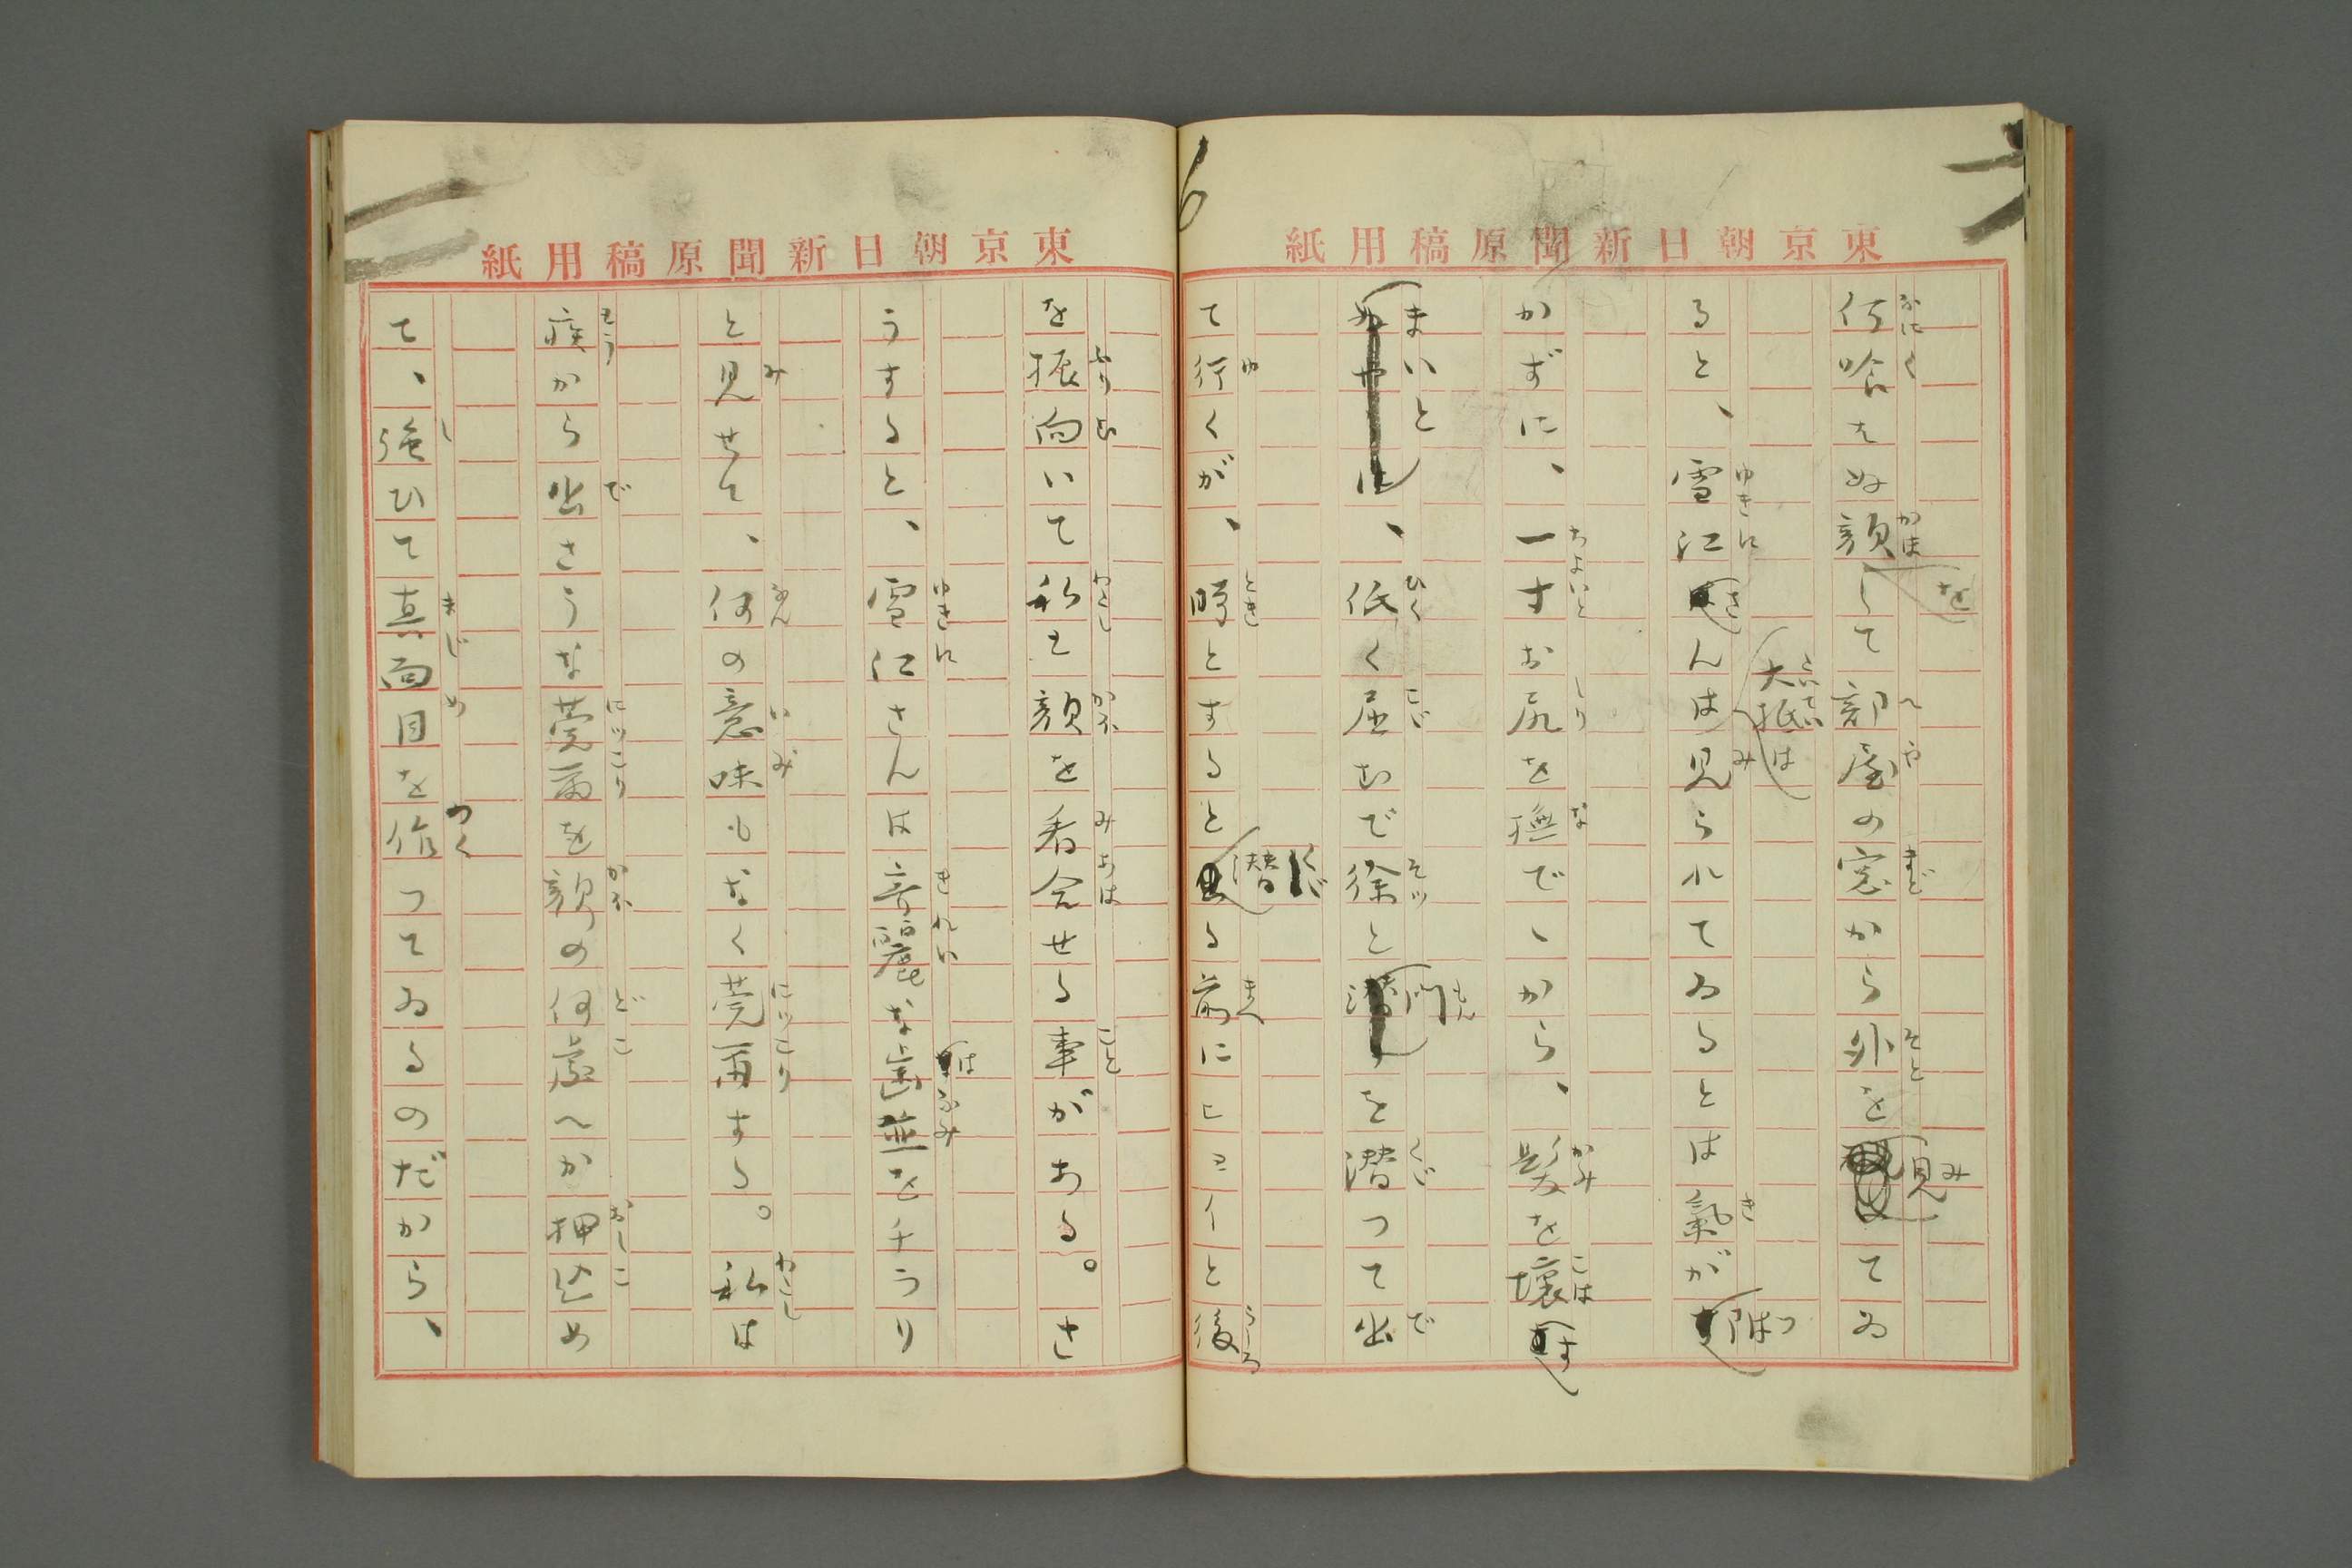 東京朝日新聞原稿用紙
何喰はぬ顔をして部屋の窓から外を見てゐ
ると、雪江さんは大抵は見られてゐるとは氣が付
かずに、一寸お尻を撫でゝから、髪を壊す
まいと、低く屈むで徐と門を潜つて出
て行くが、時とすると潜る前にヒヨイと後
東京朝日新聞原稿用紙
を振向いて私と顔を看合せる事がある。さ
うすると、雪江さんは奇麗な歯並をチラリ
と見せて、何の意味もなく莞爾する。私は
疾から出さうな莞爾を顔の何處へか押込め
て、強ひて真面目を作つてゐるのだから、